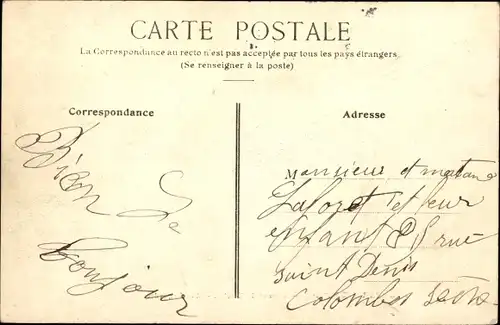 CARTE POSTALE
La Correspondance au recto n'est pas acceptée par tous les pays étrangers
(Se renseigner à la poste)
Correspondance
Adresse
Bien
Le
bonjour
Monsieur et madame
Laforet et leur
enfant 8 rue
saint Denis
Colombes Seine